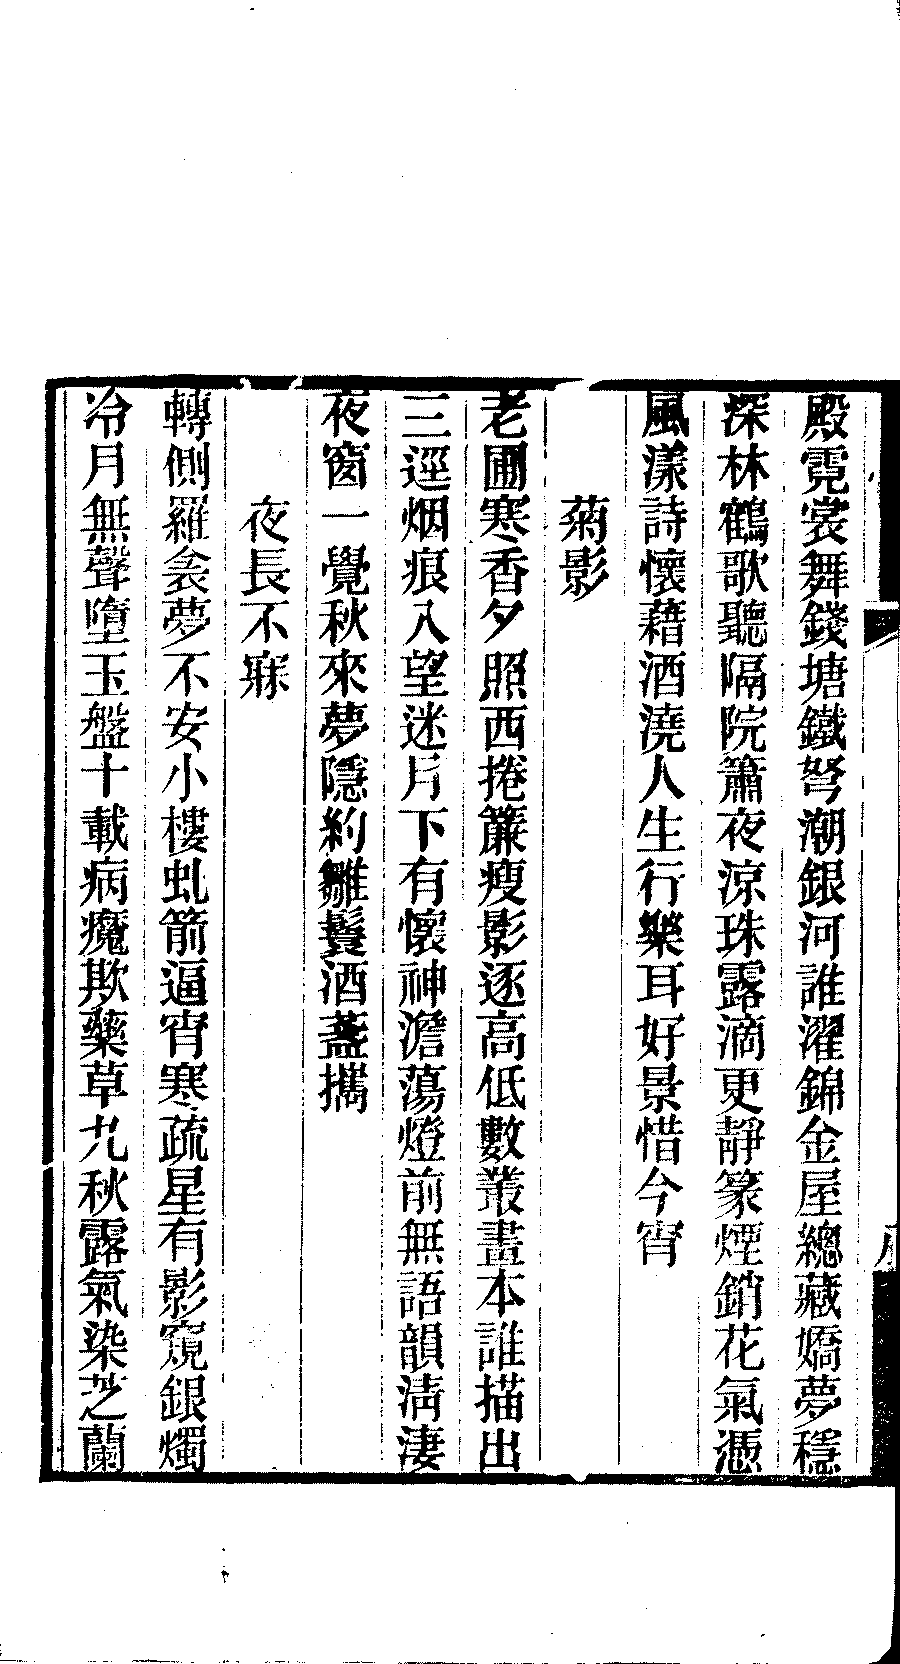 殿霓裳舞錢塘鐵弩潮銀河誰濯錦金屋總藏嬌夢穩
深林鶴歌聽隔院簫夜涼珠露滴更靜篆煙銷花氣憑
風漾詩懷藉酒澆人生行樂耳好景惜今宵
菊影
老圃寒香夕照西捲簾瘦影逐高低數叢畫本誰描出
三逕烟痕入望迷月下有懷神澹蕩燈前無語韻淸淒
夜窗一覺秋來夢隱約雛鬟酒盞攜
夜長不寐
轉側羅衾夢不安小樓虬箭逼宵寒疏星有影窺銀燭
冷月無聲墮玉盤十載病魔欺藥草九秋露氣染芝蘭